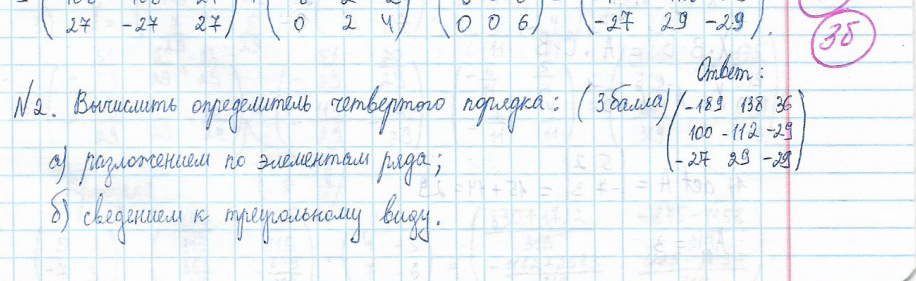 27 -27 27 0 2 4 0 0 6 -27 29 -29 .
3б
Ответ:
№2. Вычислить определитель четвертого порядка: (3 балла) -189 138 36
100 -112 -29
а) разложением по элементам ряда; -27 29 -29
б) сведением к треугольному виду.